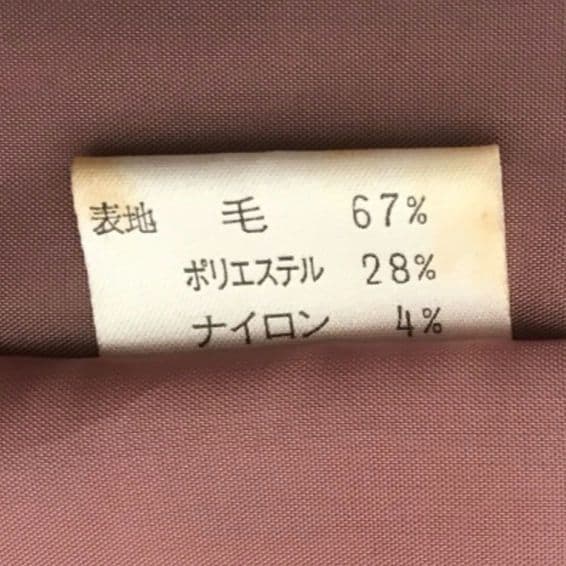 表地 毛 67%
ポリエステル 28%
ナイロン 4%